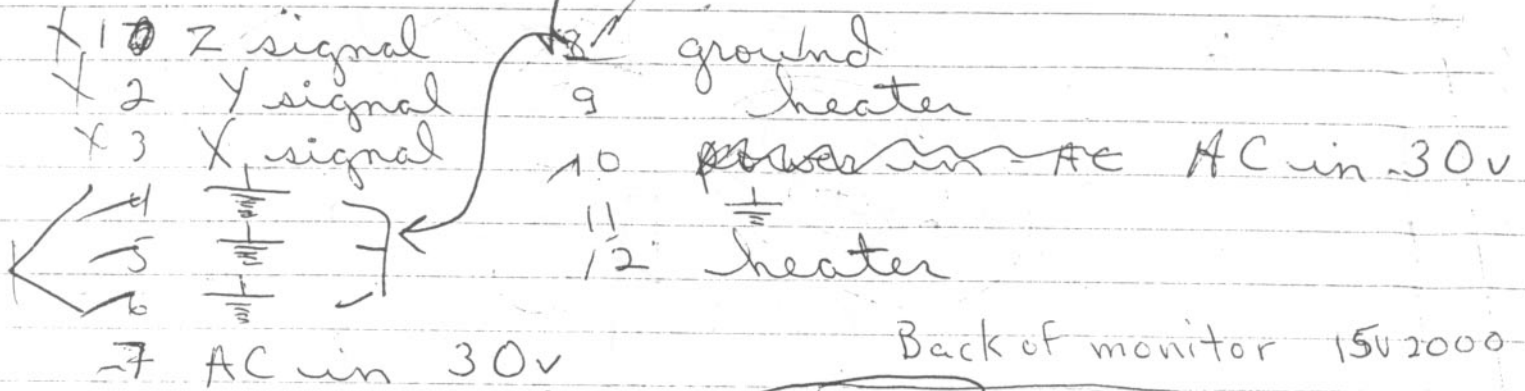 X 1 Z signal
X 2 Y signal
X 3 X signal
4
5
6
7 AC in 30v
8 ground
9 heater
10 power in AC AC in 30v
11
12 heater
Back of monitor 15V2000